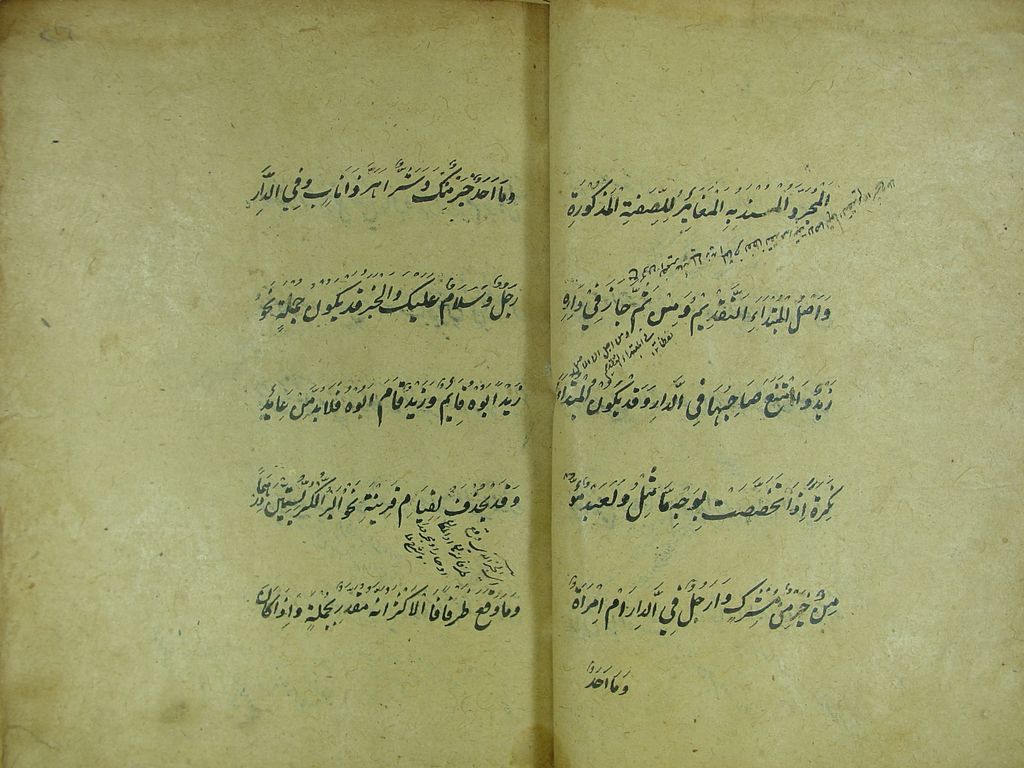 المجرد المسند به المغاير للصفة المذكورة
واصل المبتداء التقديم ومن ثم جاز في داره
زيد وامتنع صاحبها في الدار وقد يكون المبتداء
نكرة اذا تخصصت بوجه ما مثل ولعبد مؤ
من خير من مشرك وارجل في الدار ام امراة
وما احد
وما احد خير منك وشر اهر ذا ناب وفي الدار
رجل وسلام عليك والخبر قد يكون جملة نحو
زيد ابوه قايم وزيد قام ابوه فلا بد من عايد
وقد يحذف لقيام قرينة نحو البر الكر بستين درهما
وما وقع ظرفا فالاكثر انه مقدر بجملة واذا كان